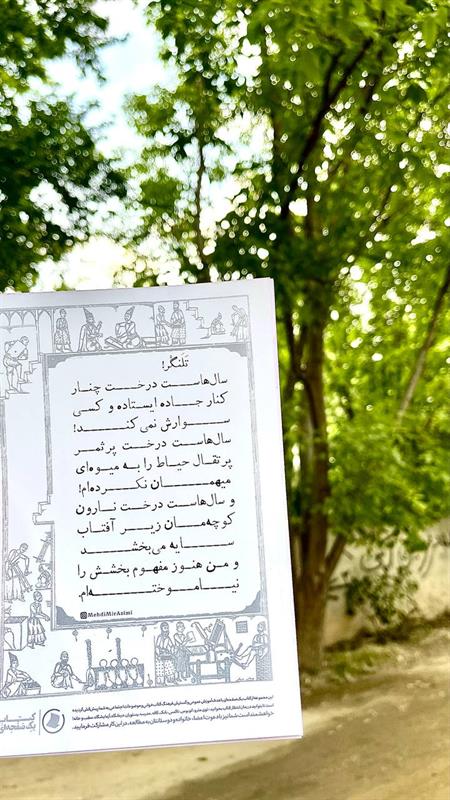 تَلَنگُر!
سال‌هاست درخت چنار
کنار جاده ایستاده و کسی
سوارش نمی کند!
سال‌هاست درخت پرثمر
پرتقال حیاط را به میوه‌ای
میهمان نکرده‌ام!
و سال‌هاست درخت نارون
کوچه‌مان زیر آفتاب
سایه می‌بخشد
و من هنوز مفهوم بخشش را
نیاموخته‌ام.
MehdiMirAzimi
کتاب
یک صفحه‌ای